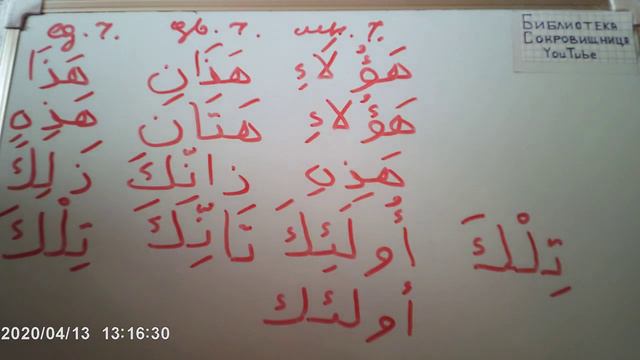 ед. ч. дв. ч. мн. ч.
БИБЛИОТЕКА
СОКРОВИЩНИЦА
YouTube
هَؤُلَاءِ هَذَانِ هَذَا
هَؤُلَاءِ هَتَانِ هَذِهِ
هَذِهِ ذَانِّكَ ذَلِكَ
تِلْكَ أُولَئِكَ تَانِّكَ تِلْكَ
أولئك
2020/04/13 13:16:30